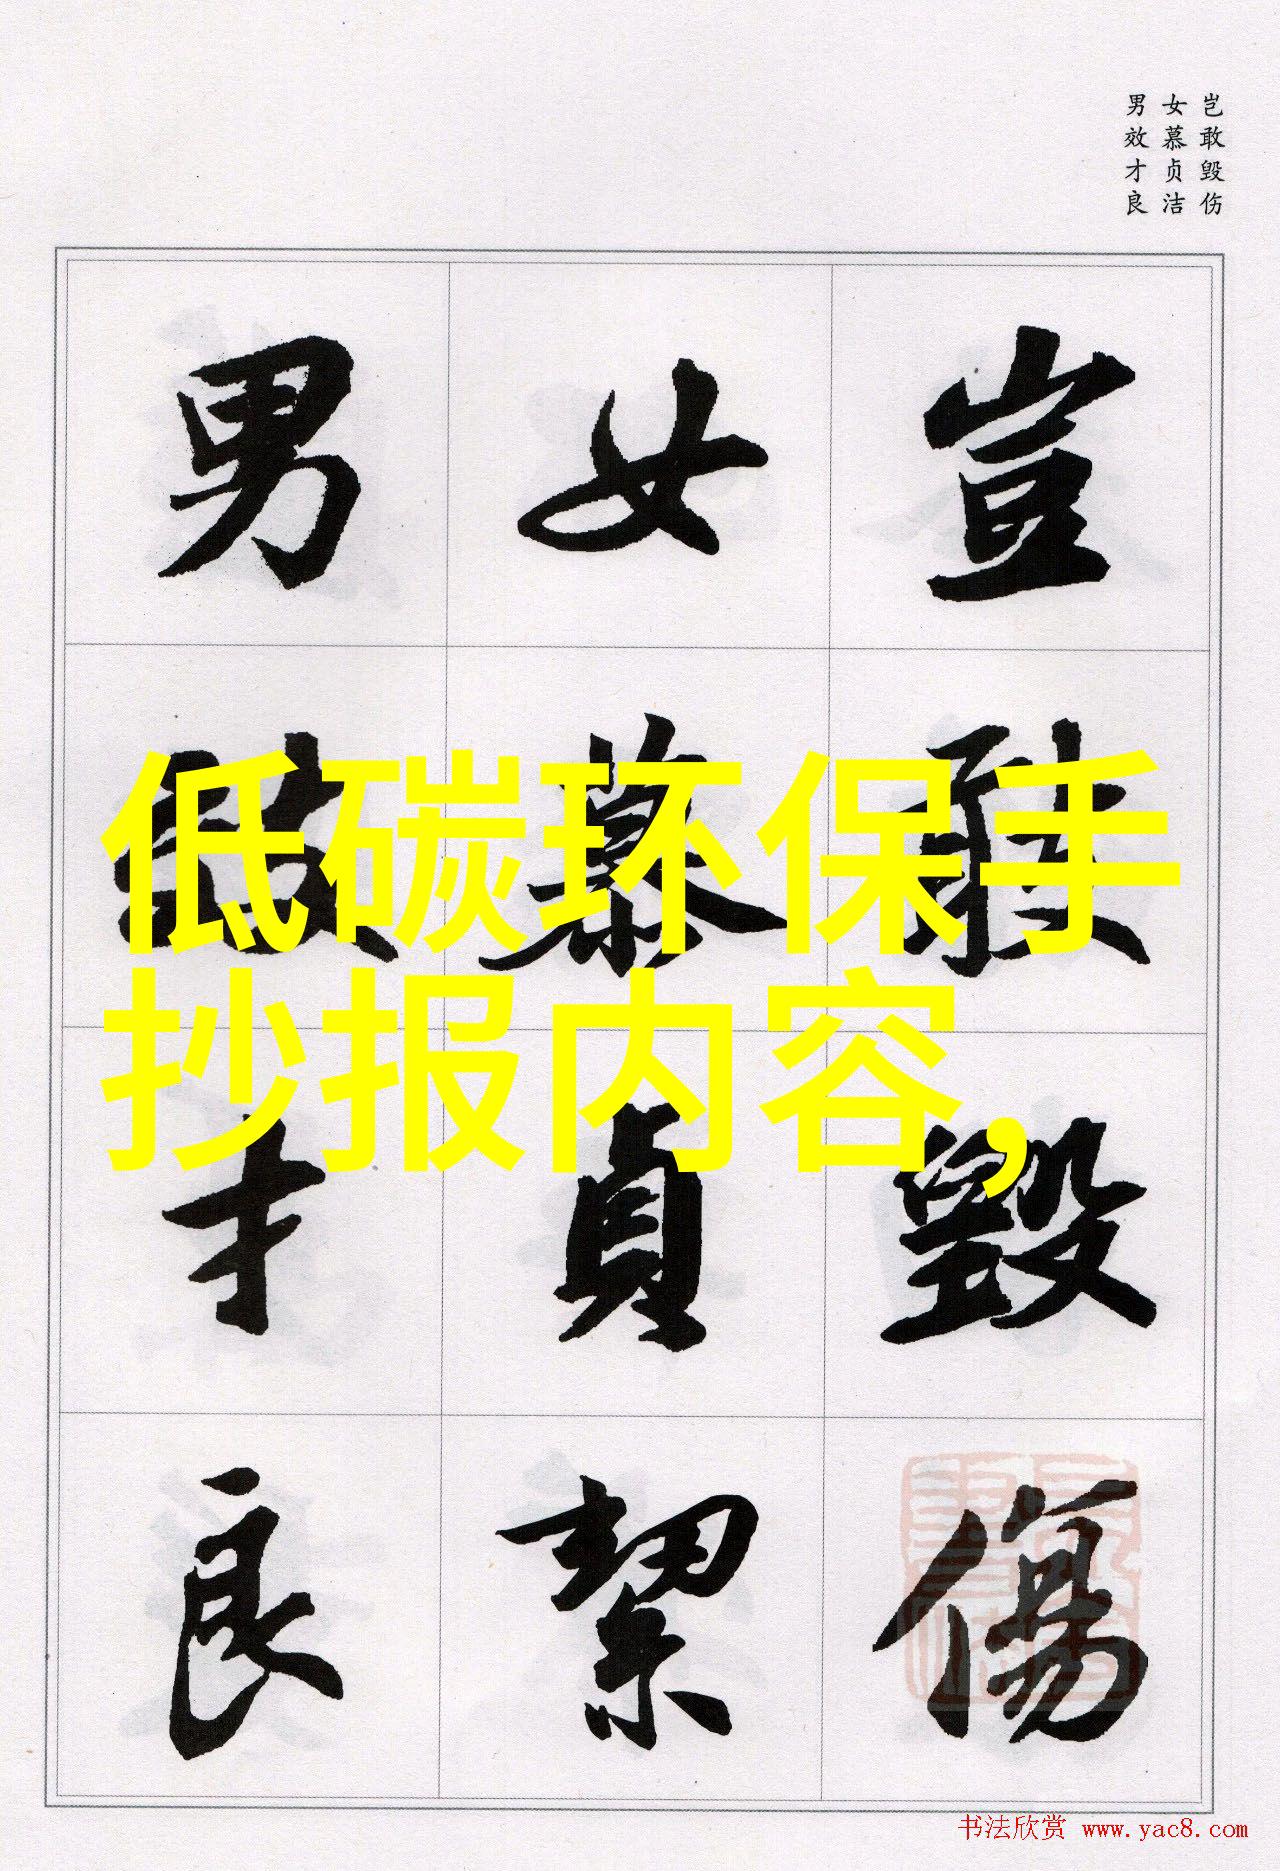 岂敢毁伤
女慕贞洁
男效才良
豈敢毀傷
女慕貞絜
男效才良
低碳环保手
抄报内容，
书法欣赏 www.yac8.com